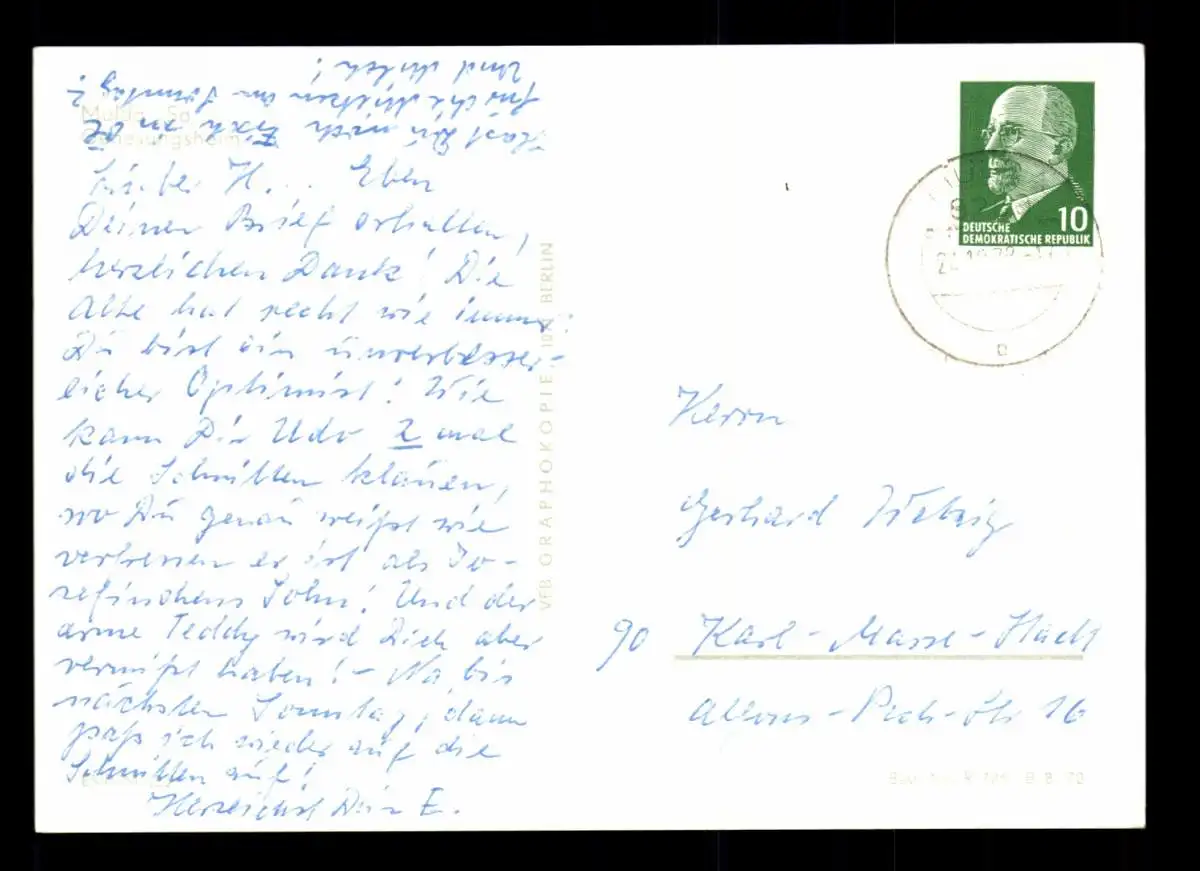 Hast Du noch
frische
Und Milch!
Mulda, Sa.
Genesungsheim
Lieber H... Eben
Deinen Brief erhalten,
herzlichen Dank! Die
Alte hat recht wie immer:
Du bist ein unverbesser-
licher Optimist! Wie
kann Dir Udo 2 mal
die Schnitten klauen,
wo Du genau weißt wie
verfressen er ist als Jo-
sefinchens Sohn! Und der
arme Teddy wird Dich aber
vermißt haben! - Na bis
nächsten Sonntag, dann
paß ich wieder auf die
Schnitten auf!
Herzlichst Dein E.
VEB ORAPHOKOPIE, BERLIN
10
DEUTSCHE
DEMOKRATISCHE REPUBLIK
Herrn
Gerhard
90 Karl-Marx-Stadt
Alfons-Pech-Str 16